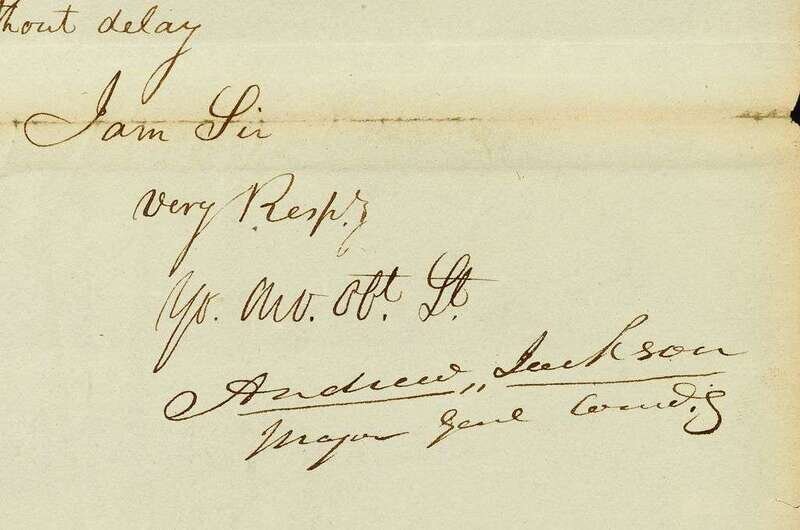 thout delay
I am Sir
very Resp.y
Yo. Mo. Obt. St.
Andrew Jackson
Major Genl Comd.g